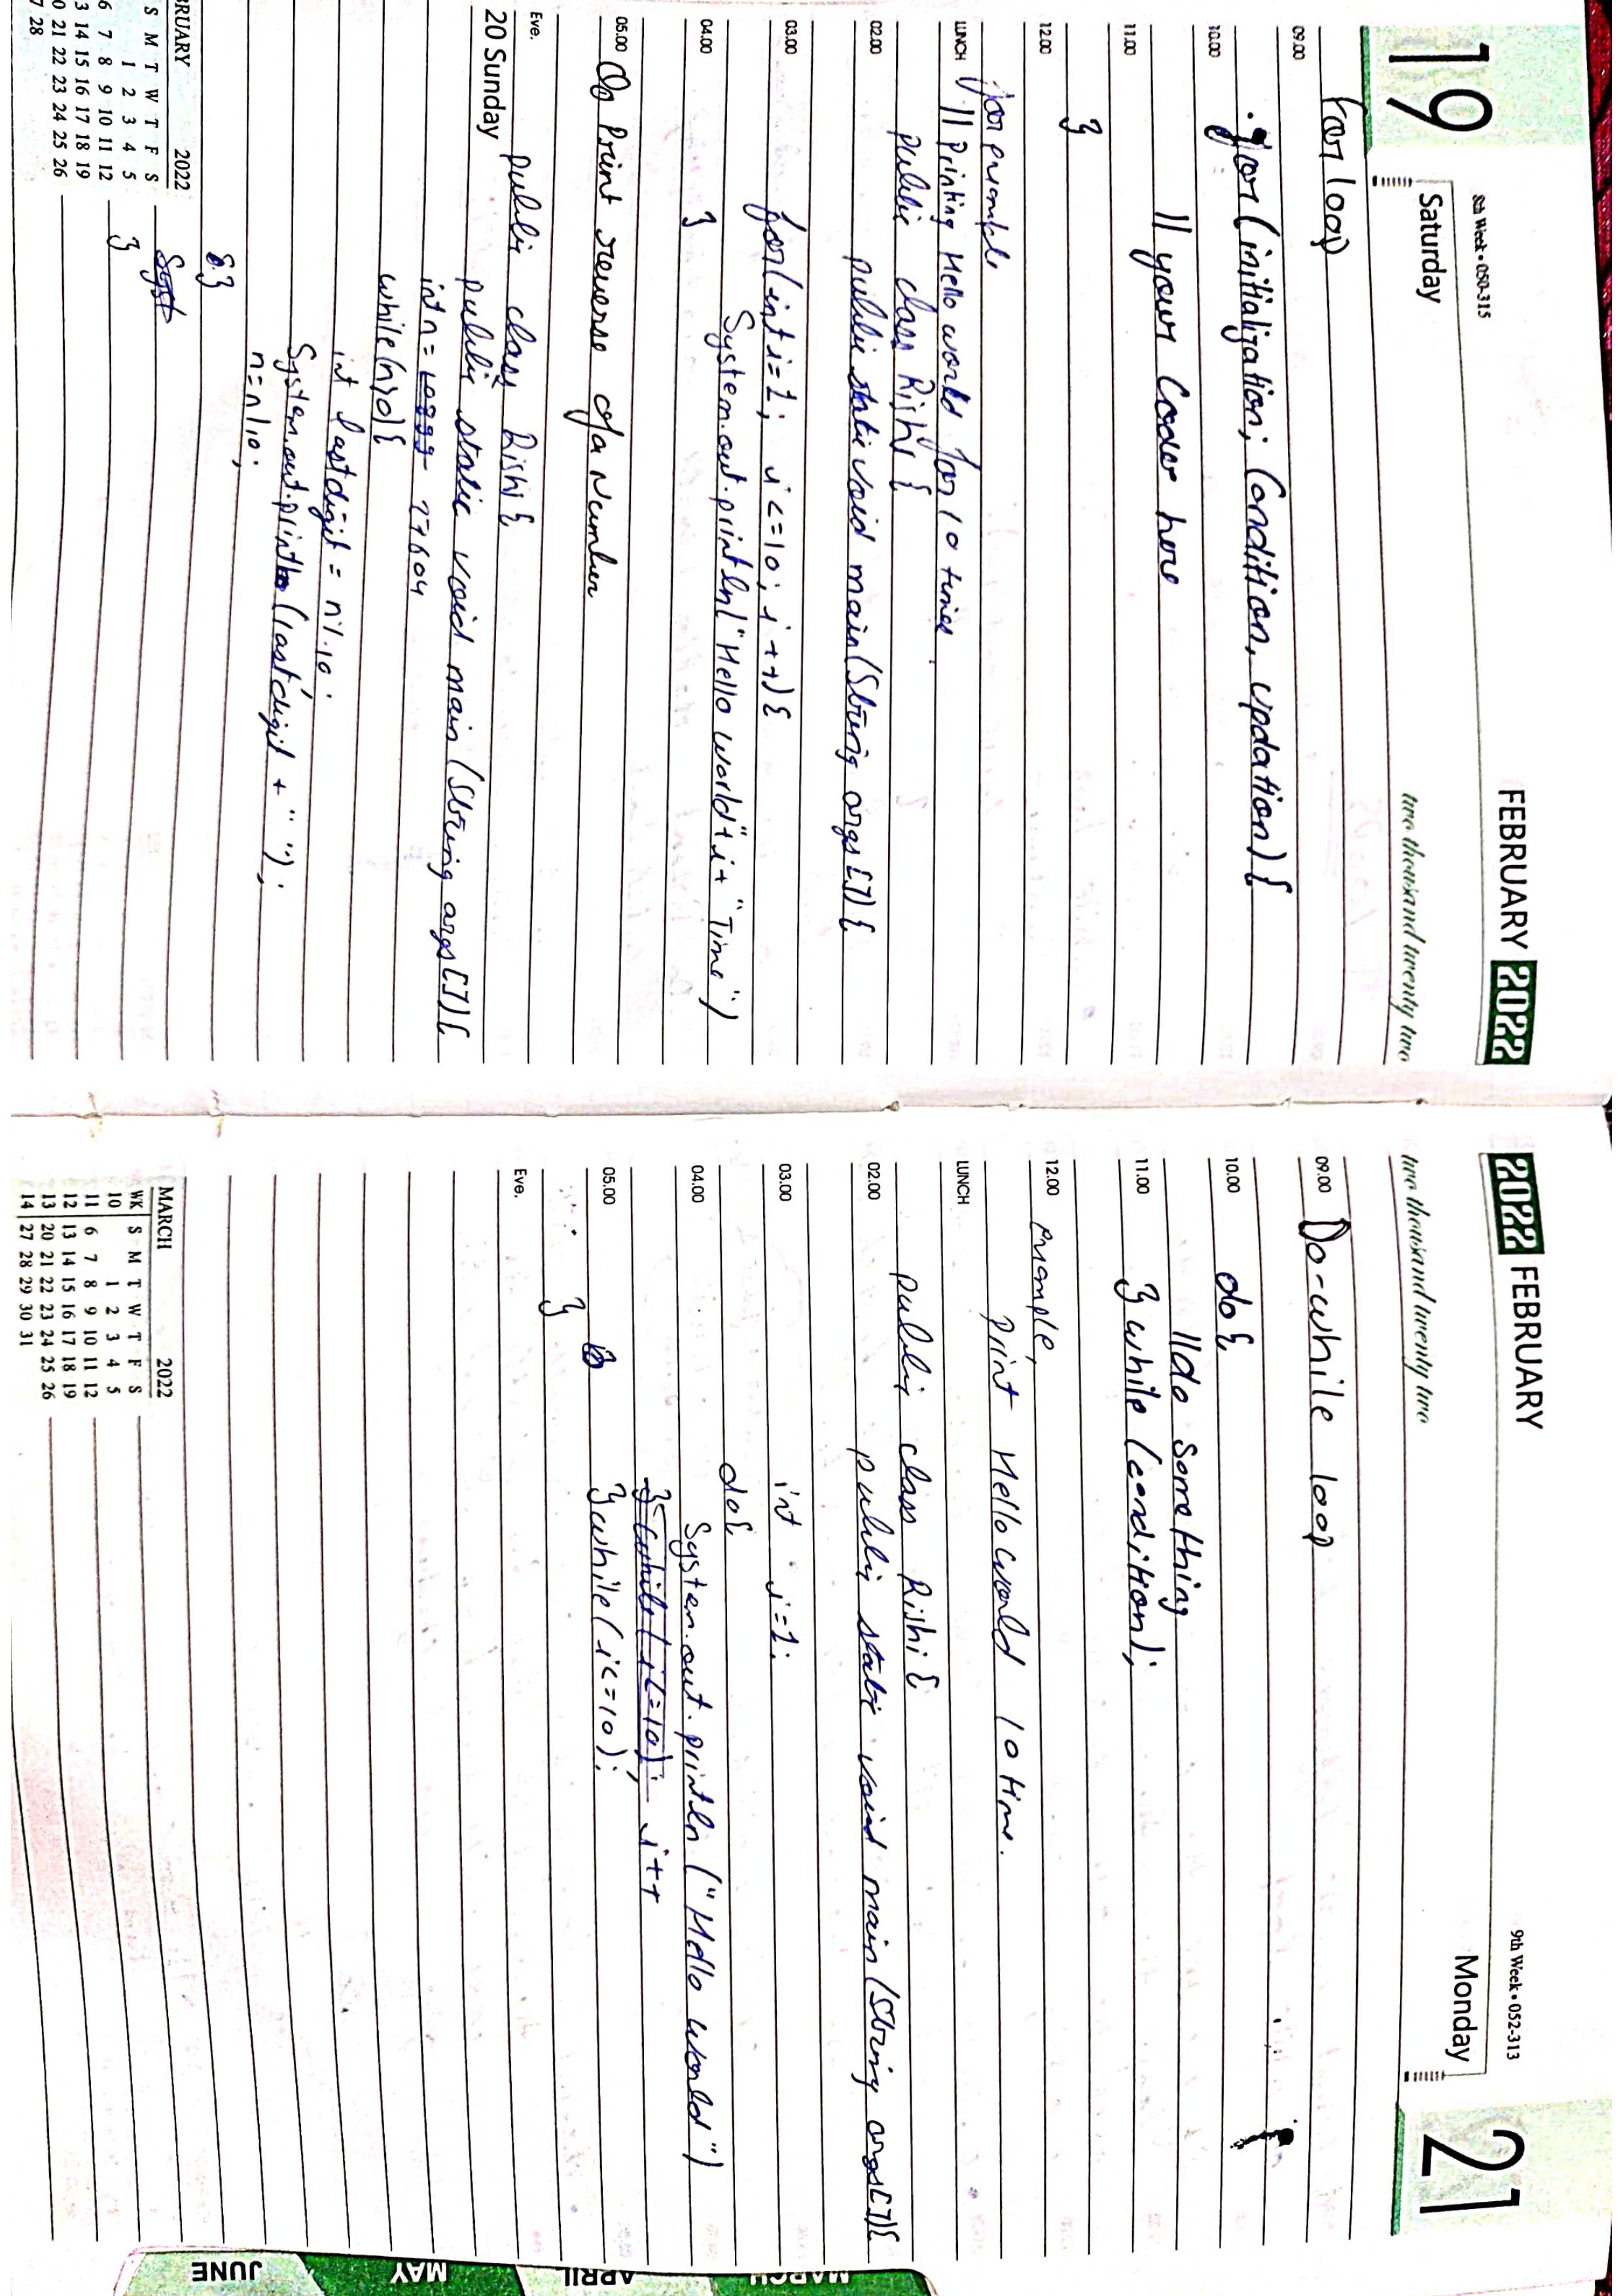 FEBRUARY 2022
19
8th Week • 050-315
Saturday
two thousand twenty two
For loop
09.00
for (initialization; Condition, updation) {
10.00
// your Code here
11.00
}
12.00
for example
LUNCH // Printing Hello world for 10 times
public class Rishi {
02.00 public static void main(String args[]) {
03.00 for(int i=1; i<=10; i++) {
System.out.println("Hello world"+i+ "Time")
04.00 }
05.00 Q. Print reverse of a Number
Eve. public class Rishi {
20 Sunday
public static void main (String args[]) {
int n = 10899 27604
while (n>0) {
int lastdigit = n%10;
System.out.print (lastdigit + " ");
n=n/10;
}
Syst
}
BRUARY 2022
S M T W T F S
1 2 3 4 5
6 7 8 9 10 11 12
3 14 15 16 17 18 19
0 21 22 23 24 25 26
7 28
2022 FEBRUARY
9th Week • 052-313
21
Monday
two thousand twenty two
09.00 Do-while loop
10.00 do {
//do something
11.00 } while (condition);
12.00 example,
print Hello world 10 time.
LUNCH
public class Rishi {
02.00 public static void main (String args[]){
03.00 int i=1;
do{
04.00 System.out.println ("Hello world")
} while (i<=10); i++
05.00 } while (i<=10);
}
Eve.
MARCH
APRIL
MAY
JUNE
MARCH 2022
WK S M T W T F S
10 1 2 3 4 5
11 6 7 8 9 10 11 12
12 13 14 15 16 17 18 19
13 20 21 22 23 24 25 26
14 27 28 29 30 31